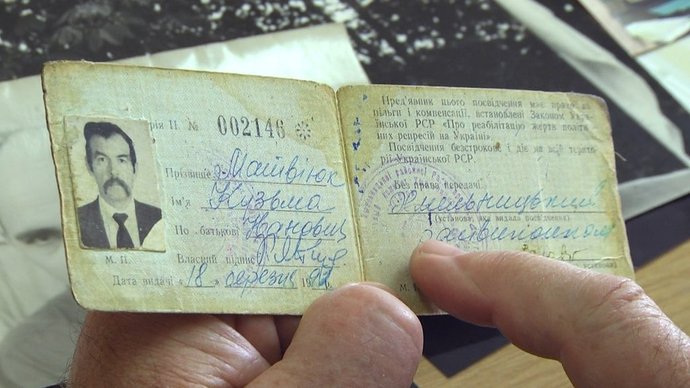 рія Н. № 002146
Прізвище Матвіюк
Ім'я Кузьма
По батькові Іванович
Власний підпис
М. П.
Дата видачі «18» березня 19
Пред'явник цього посвідчення має право на
пільги і компенсації, встановлені Законом Укра-
їнської РСР «Про реабілітацію жертв політич-
них репресій на Україні».
Посвідчення безстрокове і діє на всій терито-
рії Української РСР.
Без права передачі
Хмельницький
(установа, яка видала посвідчення)
М.